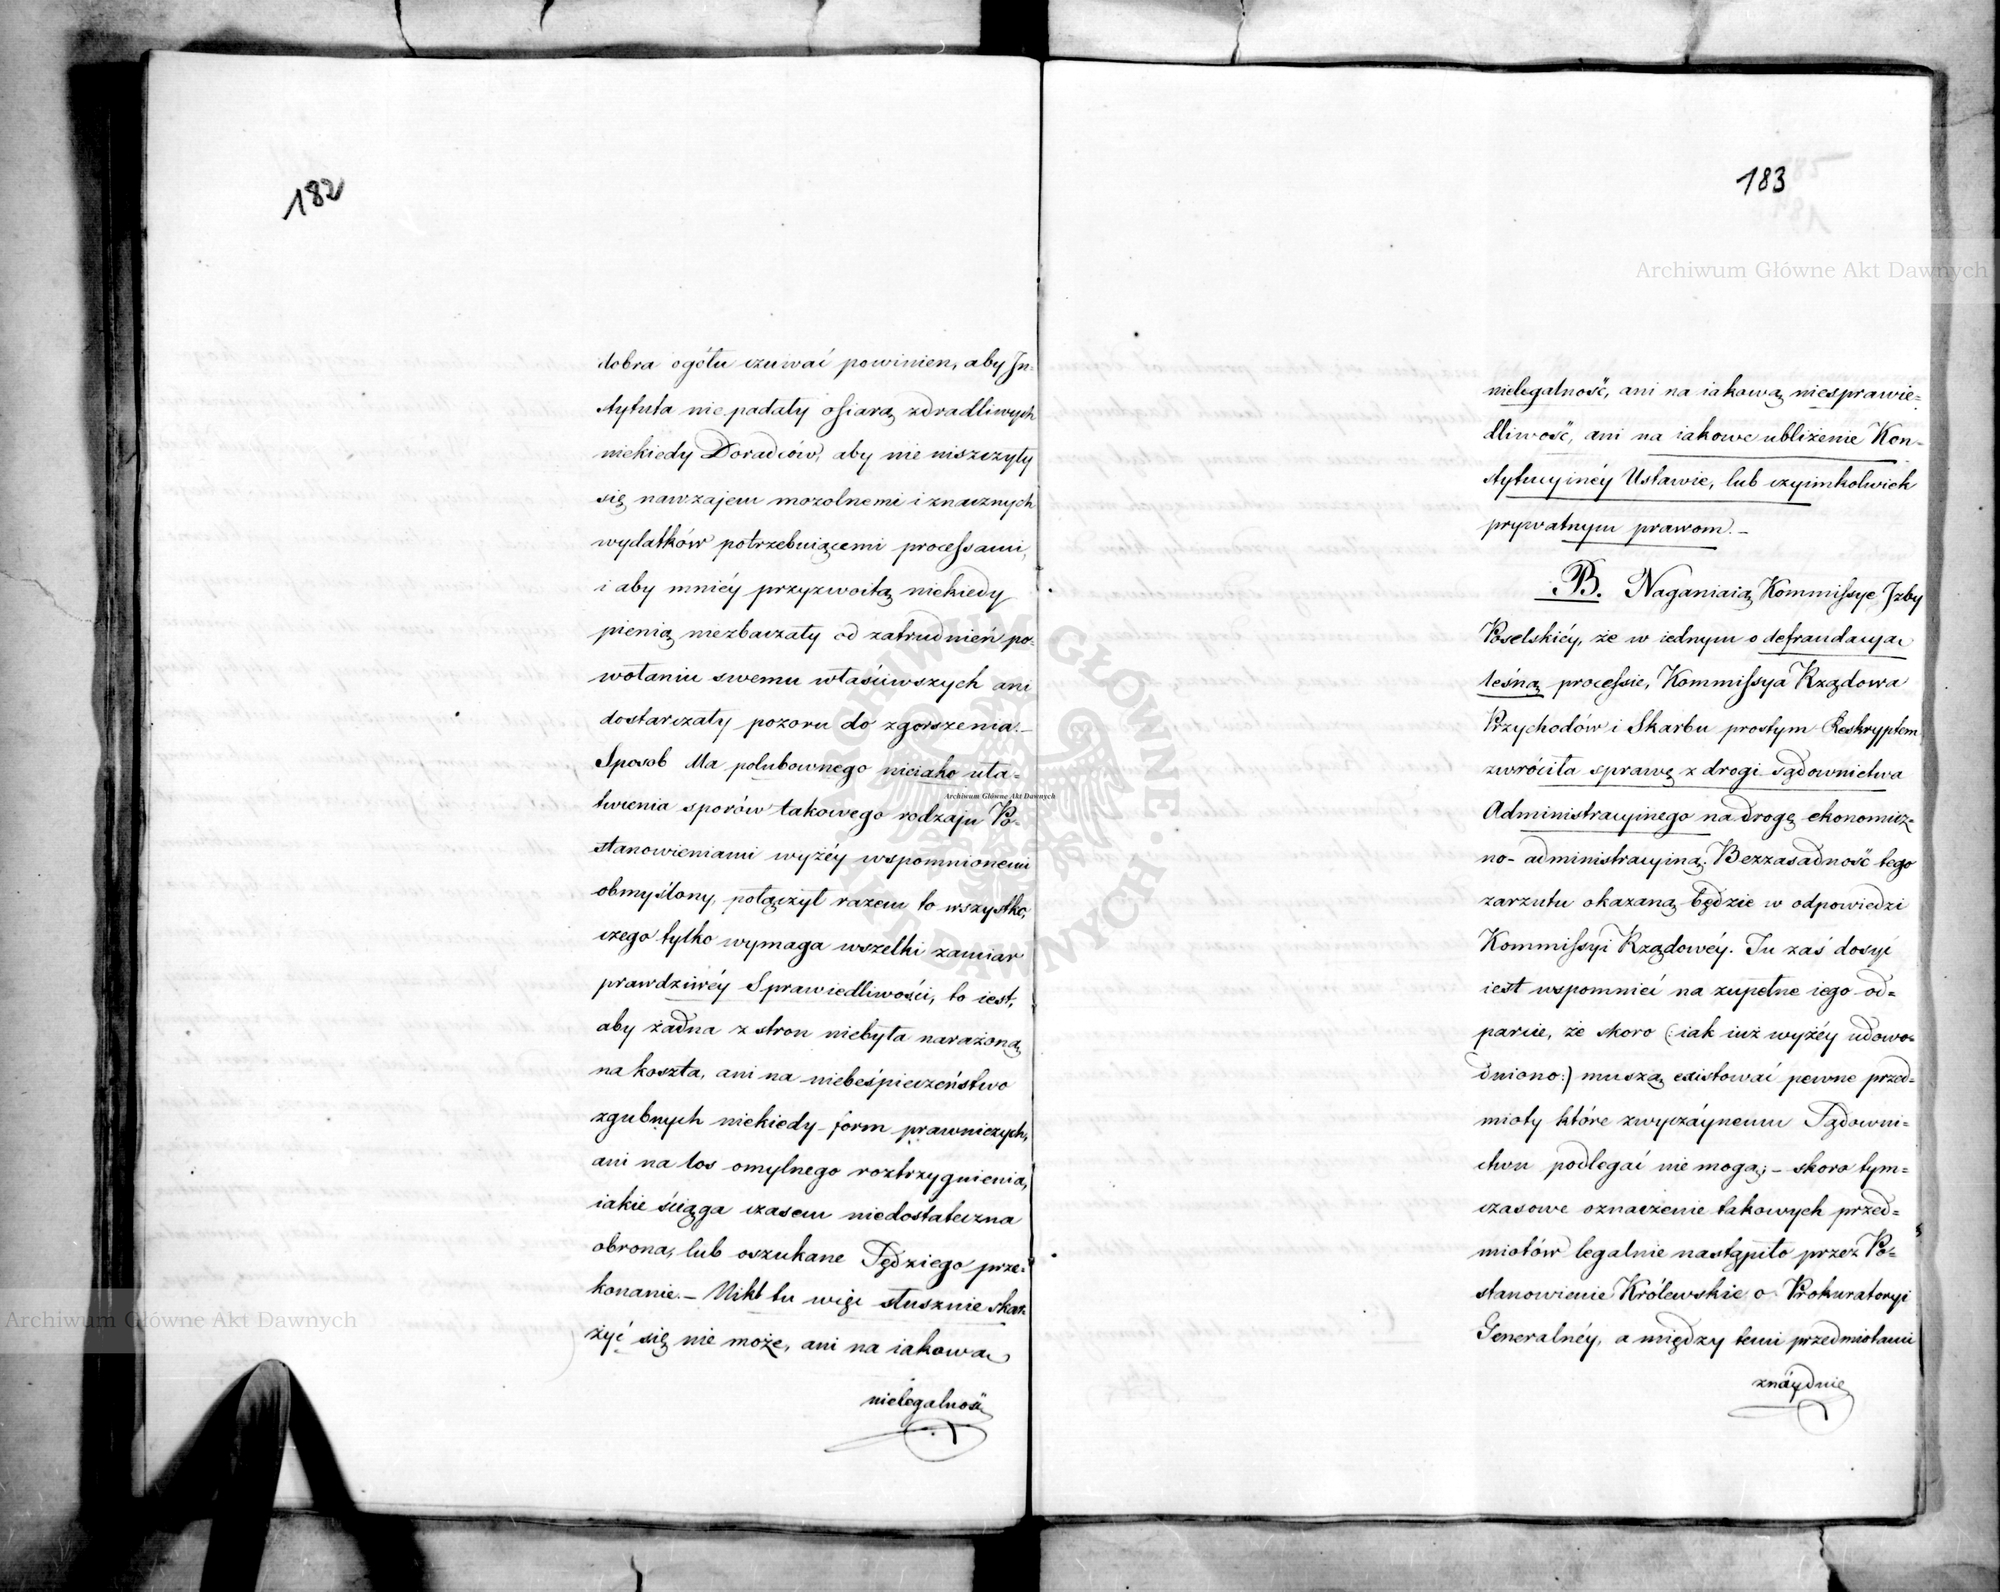 182
dobra ogółu czuwać powinien, aby In-
stytuta nie padały ofiarą zdradliwych
niekiedy Doradców, aby nie niszczyły
się nawzajem mozolnemi i znacznych
wydatków potrzebuiącemi processami,
i aby mniéy przyzwoitą niekiedy
pienią niezbaczały od zatrudnień po-
wołaniu swemu właściwszych ani
dostarczały pozoru do zgorszenia.-
Sposob Ma polubownego nieiako uła-
twienia sporów takowego rodzaju Po-
stanowieniami wyżéy wspomnionemi
obmyślony, połączył razem to wszystko,
czego tylko wymaga wszelki zamiar
prawdziwéy Sprawiedliwości, to iest,
aby żadna z stron niebyła narażoną
na koszta, ani na niebeśpieczeństwo
zgubnych niekiedy form prawniczych,
ani na los omylnego roztrzygnienia,
iakie ściąga czasem niedostateczna
obrona, lub oszukane Sędziego prze-
konanie.- Nikt tu więc słusznie skar-
żyć się nie może, ani na iakową
nielegalność
183
nielegalność, ani na iakową niesprawie=
dliwość, ani na iakowe ubliżenie Kon-
stytucyinéy Ustawie, lub czyimkolwiek
prywatnym prawom.-
B. Naganiaią Kommissye Izby
Poselskiéy, że w iednym o defraudacyą
leśną processie, Kommissya Rządowa
Przychodów i Skarbu prostym Reskryptem
zwróciła sprawę z drogi sądownictwa
Administracyinego na drogę ekonomicz=
no-administracyiną. Bezzasadność tego
zarzutu okazaną będzie w odpowiedzi
Kommissyi Rządowéy. Tu zaś dosyć
iest wspomnieć na zupełne iego od=
parcie, że skoro (:iak iuż wyżéy udowo=
dniono:) muszą existować pewne przed=
mioty które zwyczáynemu Sądowni=
ctwu podlegać nie mogą;- skoro tym=
czasowe oznaczenie takowych przed=
miotów legalnie nastąpiło przez Po=
stanowienie Królewskie o Prokuratoryi
Generalnéy, a między temi przedmiotami
znáydnie
Archiwum Główne Akt Dawnych
Archiwum Główne Akt Dawnych
Archiwum Główne Akt Dawnych
ARCHIWUM GŁÓWNE AKT DAWNYCH